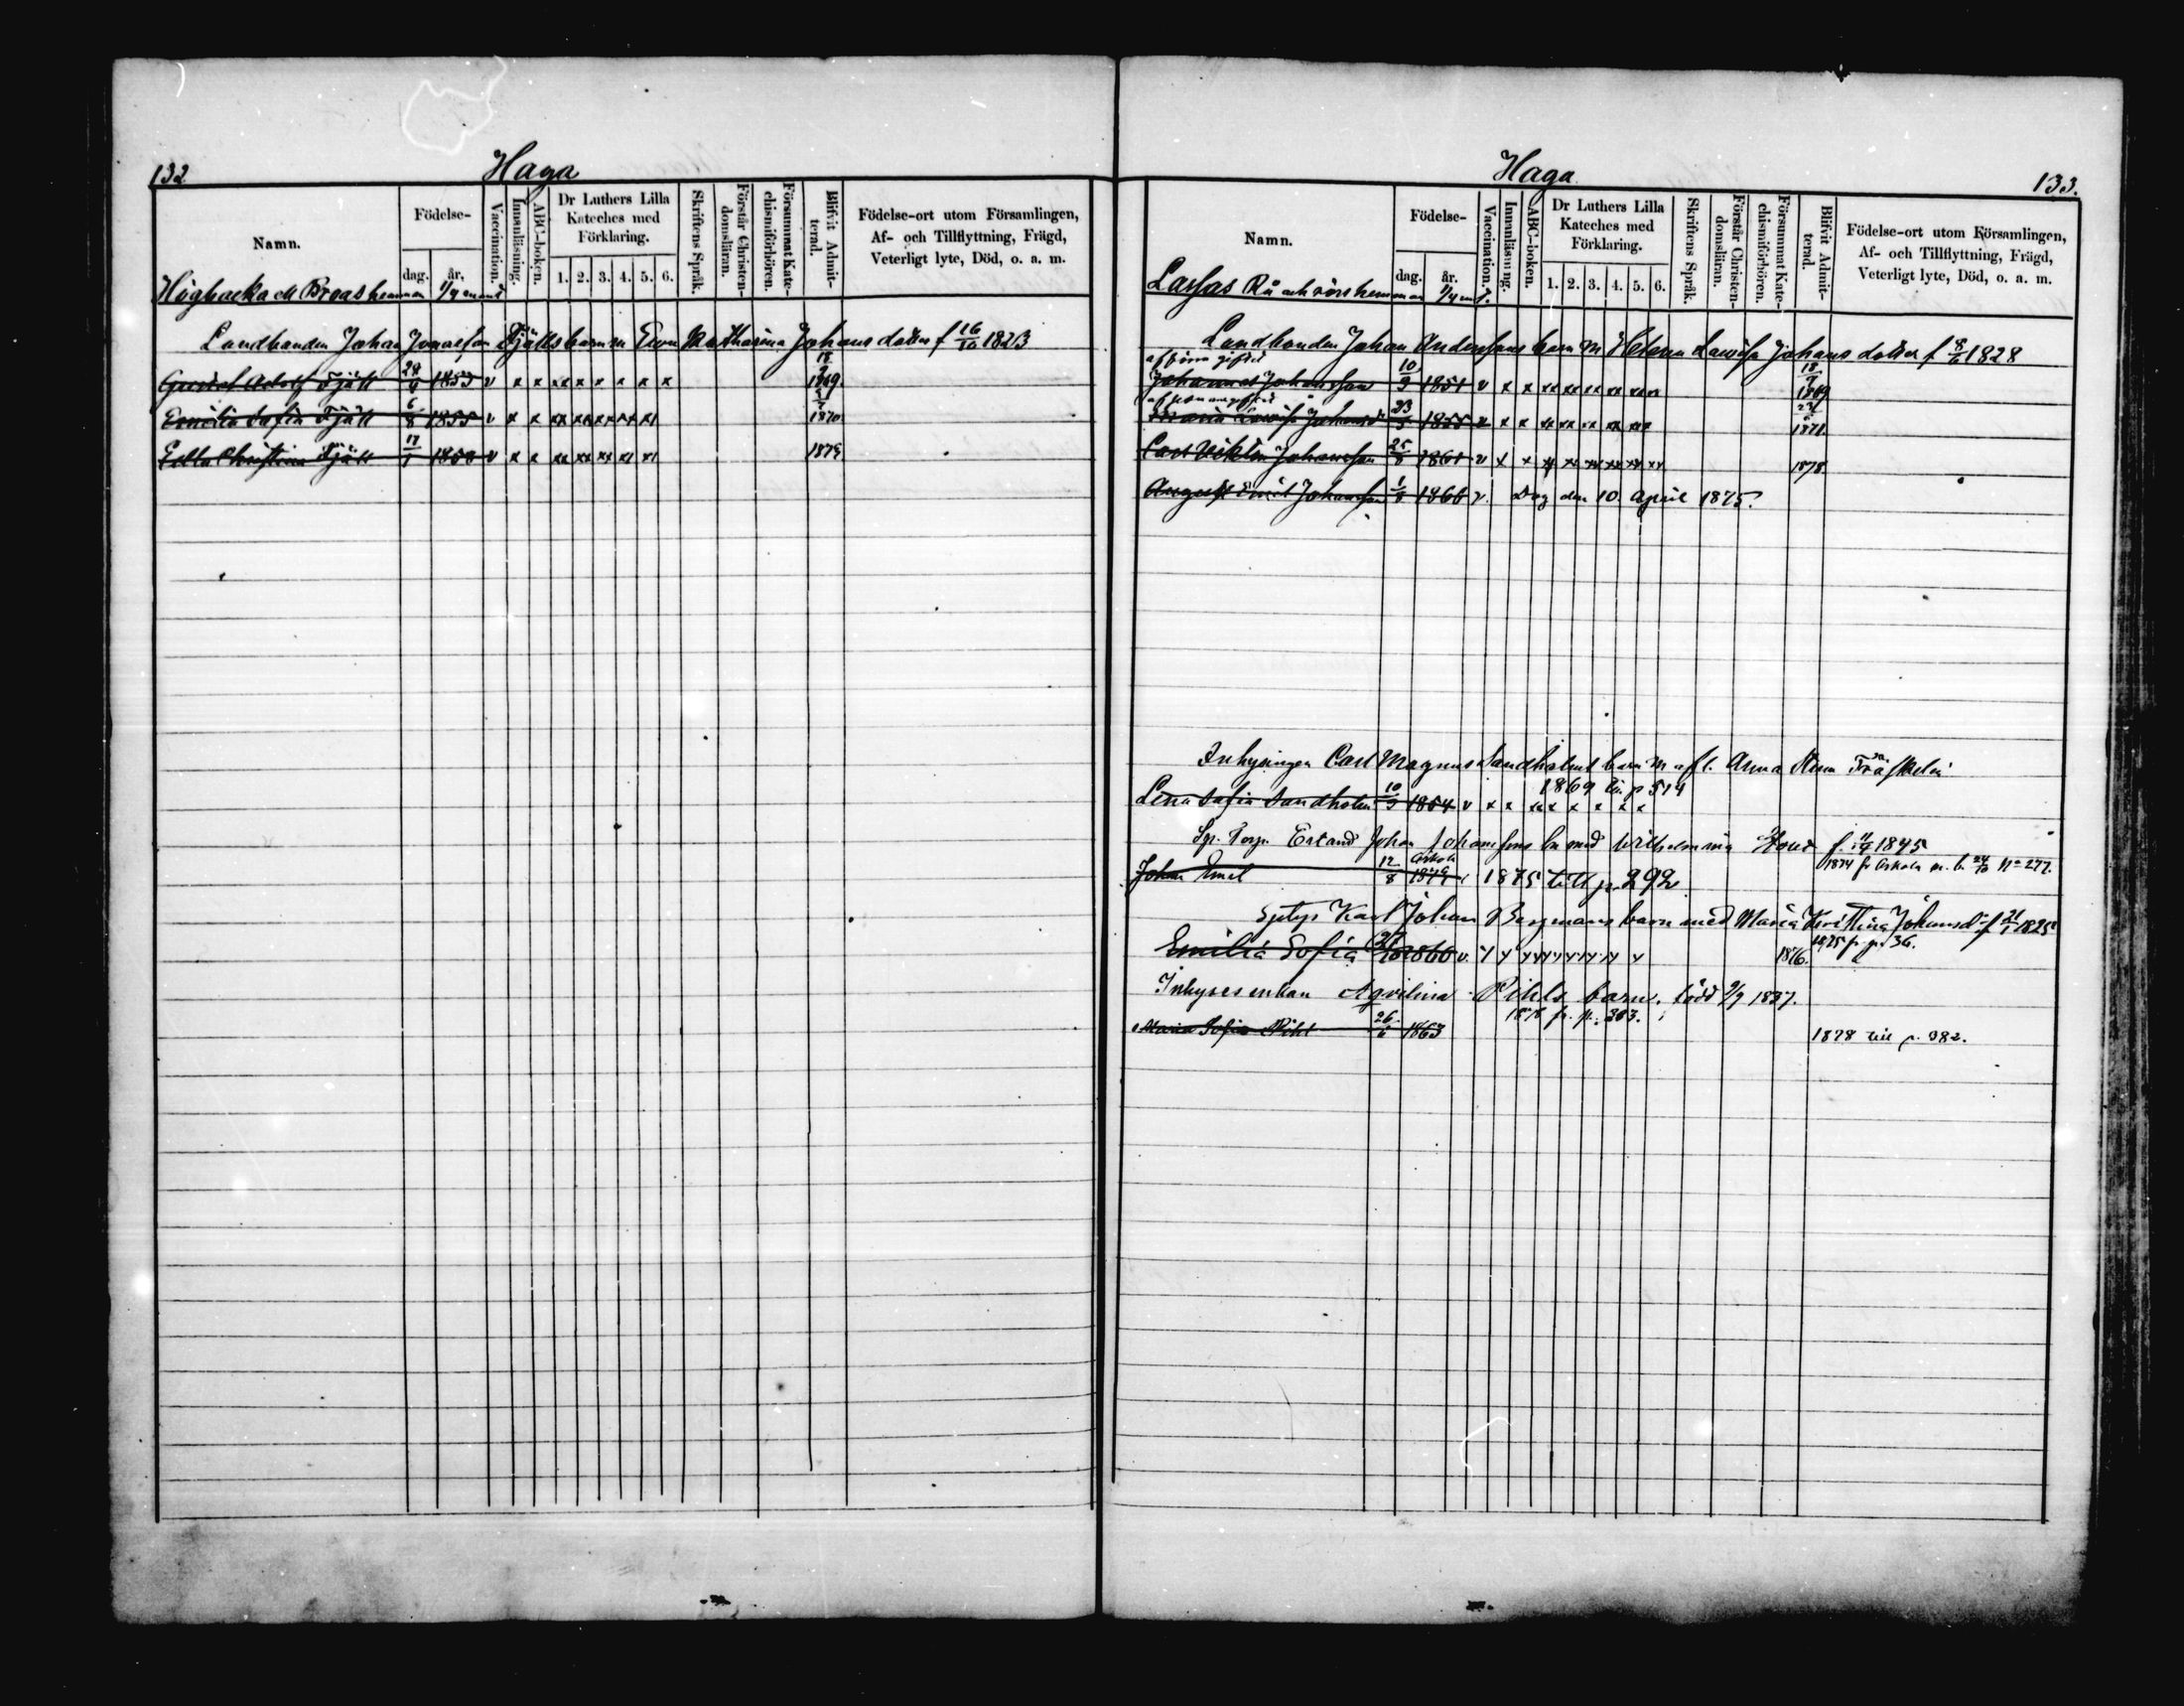 132
Haga
Namn.
Födelse-
dag.
år.
Vaccination.
Innanläsning.
ABC-boken.
Dr Luthers Lilla
Kateches med
Förklaring.
1. 2. 3. 4. 5. 6.
Skriftens Språk.
Förstår Christen-
domsläran.
Försummat Kate-
chismiförhören.
Blifvit Admit-
terad.
Födelse-ort utom Församlingen,
Af- och Tillflyttning, Frägd,
Veterligt lyte, Död, o. a. m.
och Breas hemman 1/4 mant
Landbonden Johan Jonasson Fjälls barn m Eva Katharina Johansdotter f 16/10 1823
Gustaf Adolf Fjäll 28/9 1853 v x x xx x x x x x 18/9 1869.
Emilia Sofia Fjäll 6/8 1855 v x x xx xx xx xx x 1870
Ulla Christina Fjäll 17/1 1858 v x x xx xx xx xx xx 1875.
Haga
133.
Namn.
Födelse-
dag.
år.
Vaccination.
Innanläsning.
ABC-boken.
Dr Luthers Lilla
Kateches med
Förklaring.
1. 2. 3. 4. 5. 6.
Skriftens Språk.
Förstår Christen-
domsläran.
Försummat Kate-
chismiförhören.
Blifvit Admit-
terad.
Födelse-ort utom Församlingen,
Af- och Tillflyttning, Frägd,
Veterligt lyte, Död, o. a. m.
Lassas Rå och rörs hemman 1/4 mt.
Landbonden Johan Anderssons barn m Helena Lovisa Johansdotter f 8/6 1828
Johannes Johansson 10/9 1851 v x x xx xx xx xx xx 18/9 1869
Maria Lovisa Johansdr 23/5 1855 v x x xx xx xx xx 1871.
Carl Viktor Johansson 25/8 1861 v x x xx xx xx xx xx xx 1878.
August Emil Johansson 1866 v. Dog den 10 April 1875.
Inhysingen Carl Magnus Sandholms barn m afl. Anna Stina Fräskelin
1869 till p 514
Lena Sofia Sandholm 10/9 1854 v x x xx x x x x x
Torp. Erland Johan Johanssons bn med Wilhelmina f. 1845
Johan Emil 12/8 1875 till p. 292
1874 fr Askola m. b. 24/10 No 277.
Karl Johan Bergmans barn med Maria Kristina Johansdr f 21/1 1825
1875 fr p. 36.
Emilia Sofia 1860 v. 1876.
Inhyses enkan Aqvilina Pihls barn, född 9/9 1837.
1878 fr. p. 303.
Maria Sofia Pihl 26/6 1863
1878 till p. 382.